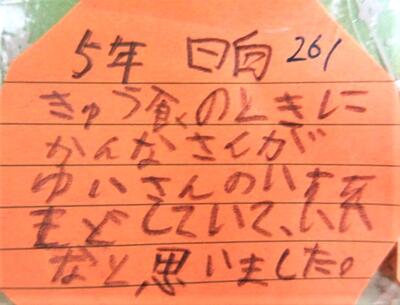 5年 日向 261
きゅう食のときに
かんなさんが
ゆいさんのいすを
もどしていて、いい
なと思いました。